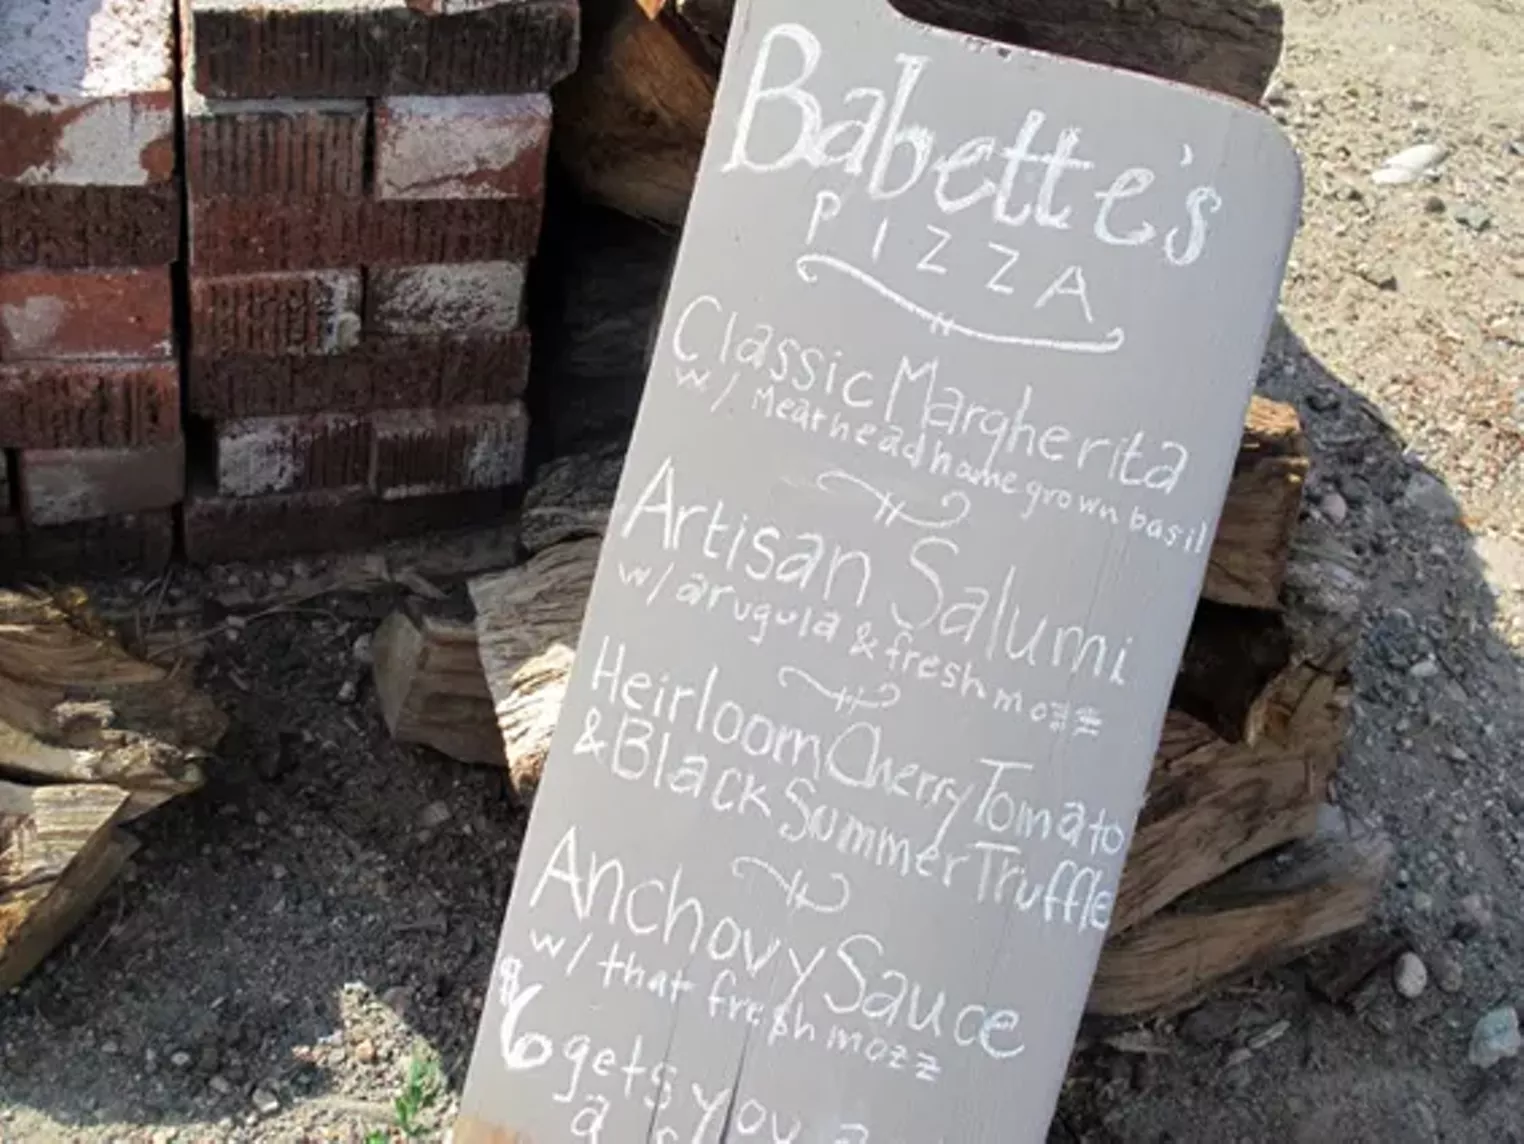 Babette's
PIZZA
Classic Margherita
w/ Mearhead homegrown basil
Artisan Salumi
w/ arugula & fresh mozz
Heirloom Cherry Tomato
& Black Summer Truffle
Anchovy Sauce
w/ that fresh mozz
$6 gets you a
a